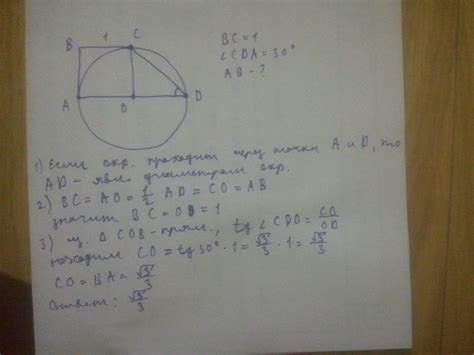 B 1 C
A O D
BC=1
∠CDA=30°
AB-?
1) Если окр. проходит через точки A и D, то
AD - явл. диаметром окр.
2) BC = AO = 1/2 AD = CO = AB
значит BC = OD = 1
3) из Δ COD - прям., tg ∠CDO = CO/OD
находим CO = tg 30° · 1 = √3/3 · 1 = √3/3
CO = BA = √3/3
Ответ: √3/3